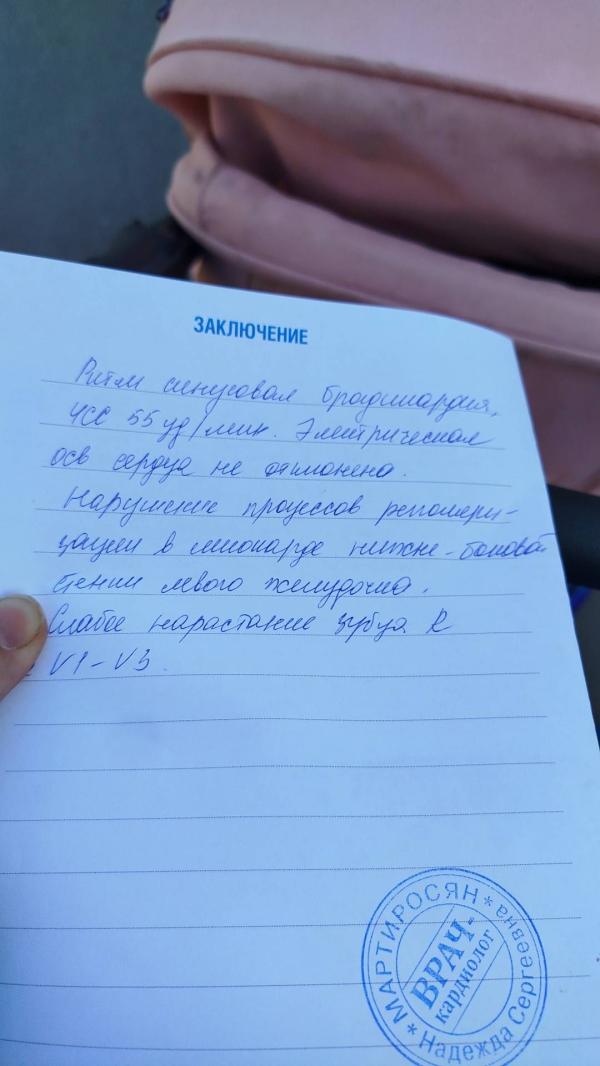 ЗАКЛЮЧЕНИЕ
Ритм синусовая брадикардия,
ЧСС 55 уд/мин. Электрическая
ось сердца не отклонена.
Нарушение процессов реполяри-
зации в миокарде нижне-боковой
стенки левого желудочка.
Слабое нарастание зубца R
с V1-V3.
МАРТИРОСЯН * Надежда Сергеевна *
ВРАЧ-
кардиолог